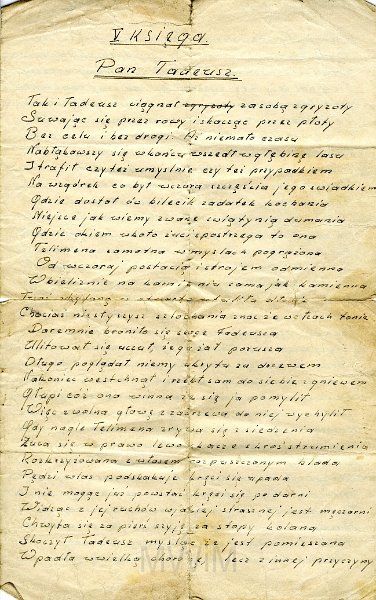 V Księga.
Pan Tadeusz.
Tak i Tadeusz ciągnął zgryzoty za sobą zgryzoty
Suwając się przez rowy i skacząc przez płoty
Bez celu i bez drogi. Aż niemało czasu
Nabłąkawszy się w końcu wszedł w głębinę lasu
I trafił czy też umyślnie czy też przypadkiem
Na wzgórek co był wczora szczęścia jego świadkiem
Gdzie dostał ów bilecik zadatek kochania
Miejsce jak wiemy zwane świątynią dumania
Gdzie okiem wkoło rzuci spostrzega to ona
Telimena samotna w myślach pogrążona
Od wczoraj postacią i strojem odmienna
W bieliźnie na kamieniu sama jak kamienna
Twarz
Chociaż nie słyszysz szlochania znać że we łzach tonie
Daremnie broniło się serce Tadeusza
Ulitował się uczuł, że go żal porusza
Długo poglądał niemy ukryty za drzewem
Nakoniec westchnął i rzekł sam do siebie z gniewem
Głupi cóż ona winna że się ja pomylił
Więc zwolna głowę z za drzewa do niej wychylił
Gdy nagle Telimena zrywa się z siedzenia
Rzuca się w prawo lewo skacze skroś strumienia
Rozkrzyżowana z włosem rozpuszczonym blada
Pędzi w las podskakuje kręci się upada
I nie mogąc już powstać kręci się po darni
Widząc z jej ruchów w jakiej strasznej jest męczarni
Chwyta się za pierś szyję za stopy kolana
Skoczył Tadeusz myśląc że jest pomieszana
Wpadła w wielką chorobę, lecz z innej przyczyny
MWIM